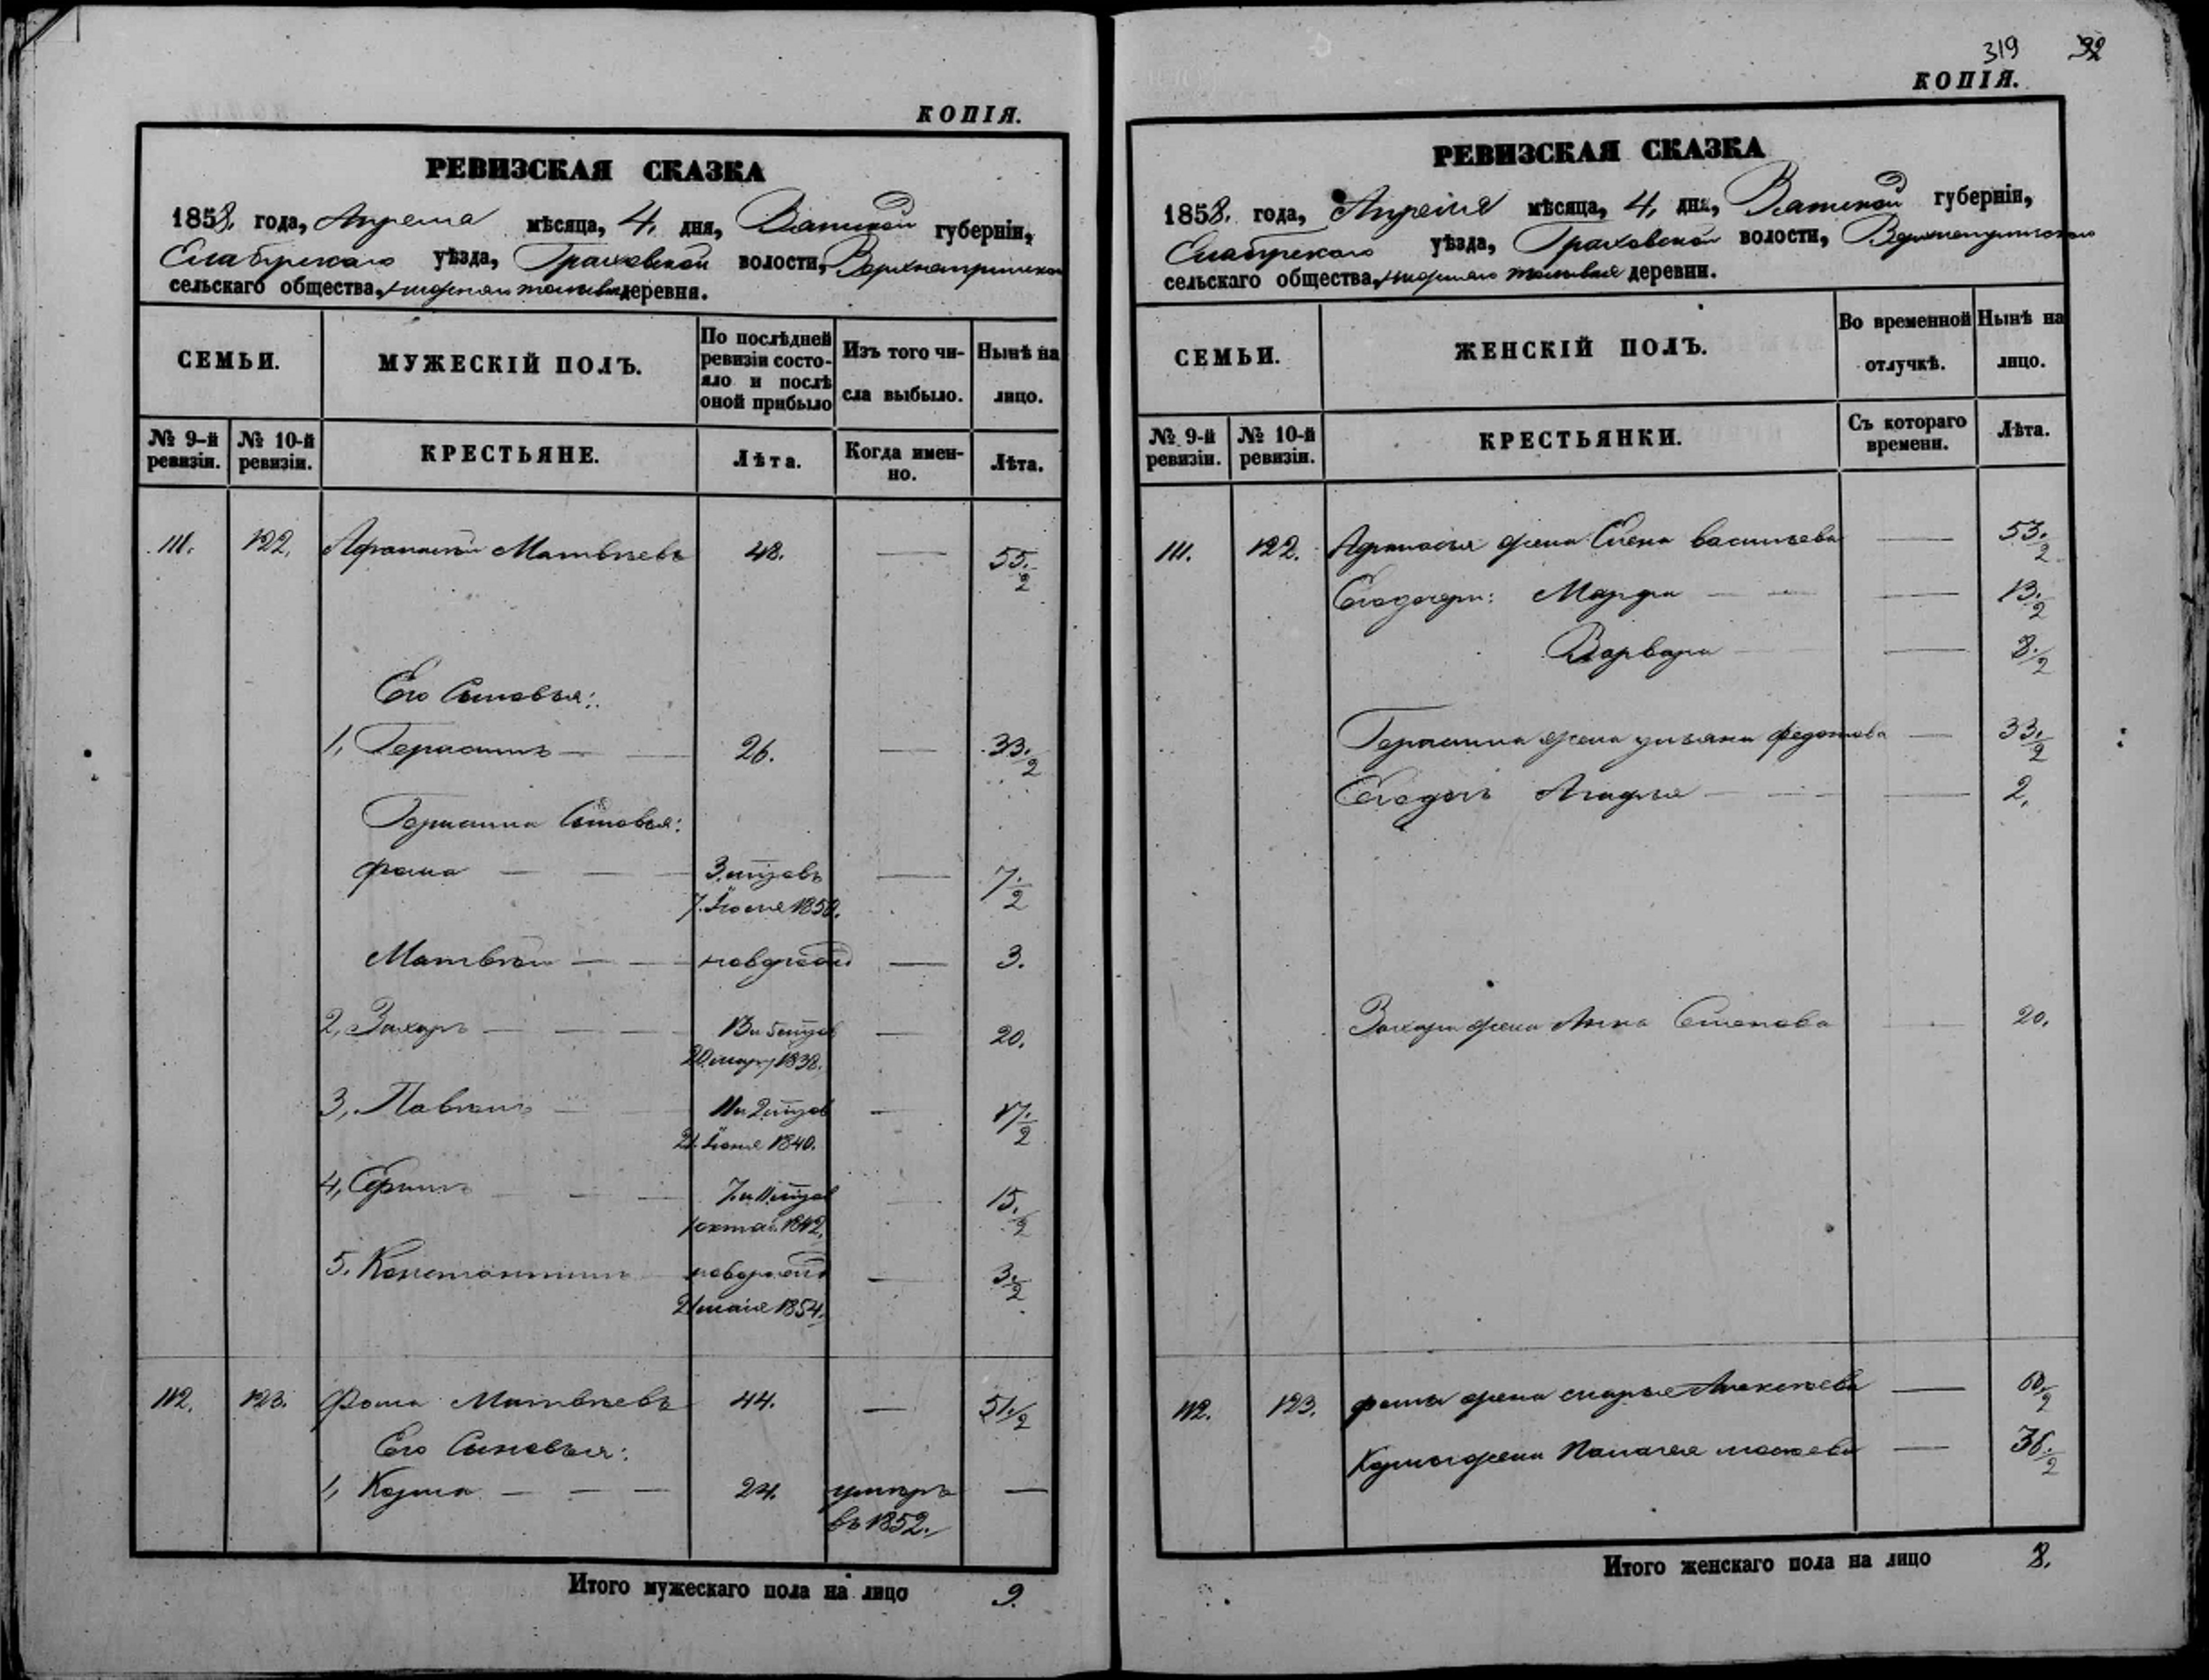 КОПІЯ.
РЕВИЗСКАЯ СКАЗКА
1858. года, Апреля мѣсяца, 4. дня, Вятской губерніи,
Елабужскаго уѣзда, Граховской волости,
сельскаго общества, деревня.
СЕМЬИ.
МУЖЕСКІЙ ПОЛЪ.
По послѣдней ревизіи состояло и послѣ оной прибыло
Изъ того числа выбыло.
Нынѣ на лицо.
№ 9-й ревизіи.
№ 10-й ревизіи.
КРЕСТЬЯНЕ.
Лѣта.
Когда именно.
Лѣта.
111. 122. Афанасій Матвѣевъ 48. — 55. 1/2
Его Сыновья:
1, Герасимъ — — 26. — 33. 1/2
Герасима Сыновья:
Фома — — — 7. 1/2
7. 1850.
Матвѣй — — — 3.
2, Захаръ — — — — 20.
1838.
3, Павелъ — — — 17. 1/2
1840.
4, — — — 15. 1/2
1842.
5. Константинъ — 3. 1/2
1854.
112. 123. Фома Матвѣевъ 44. — 51. 1/2
Его Сыновья:
1, Козма — — — 24. умеръ —
въ 1852.
Итого мужескаго пола на лицо 9.
319 92
КОПІЯ.
РЕВИЗСКАЯ СКАЗКА
1858. года, Апреля мѣсяца, 4. дня, Вятской губерніи,
Елабужскаго уѣзда, Граховской волости,
сельскаго общества, деревни.
СЕМЬИ.
ЖЕНСКІЙ ПОЛЪ.
Во временной отлучкѣ.
Нынѣ на лицо.
№ 9-й ревизіи.
№ 10-й ревизіи.
КРЕСТЬЯНКИ.
Съ котораго времени.
Лѣта.
111. 122. Афанасья жена Елена васильева — 53. 1/2
Его дочери: Марфа — — — 13. 1/2
Варвара — — 8. 1/2
Герасима жена ульяна федотова — 33. 1/2
Его дочь Агафья — — — 2.
Захара жена Анна — 20.
112. 123. фомы жена марья Алексеева — 60. 1/2
Козмы жена Палагея — 36. 1/2
Итого женскаго пола на лицо 8.